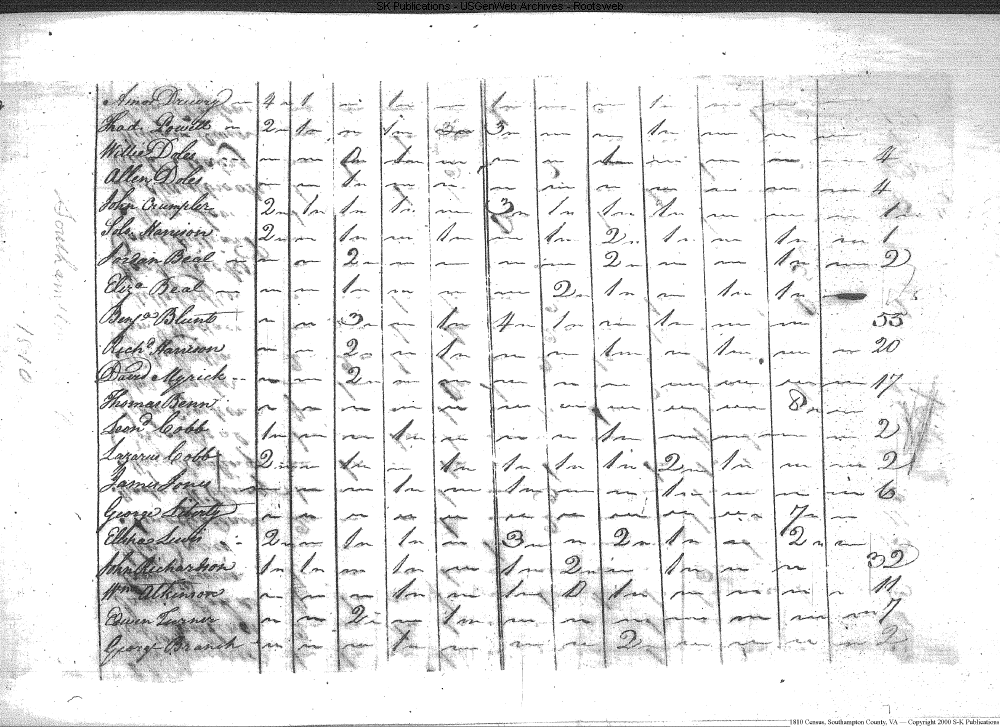 SK Publications - USGenWeb Archives - Rootsweb
Amos Drewry 4 1 1 1 1
Thad. Powell 2 1 1 3 3 1
Willie Doles 1 1 4
Allen Doles 1 4
John Crumpler 2 1 1 1 3 1 1 1 1
Harrison 2 1 1 1 2 1 1 1
Beal 2 2 1 2
Eliza Beal 1 2 1 1 1
Benja Blunt 3 1 4 1 1 55
Richd Harrison 2 1 1 1 20
David Myrick 2 17
Thomas Benn 8
Cobb 1 1 1 2
Lazarus Cobb 2 1 1 1 1 1 2 1 2
James Jones 1 1 1 6
George Liberty 7
Elisha 2 1 1 3 2 1 2
John Richardson 1 1 1 1 2 1 32
Wm Atkinson 1 1 1 11
Edwin Turner 2 1 7
George Branch 1 2 2
Southampton 1810
1810 Census, Southampton County, VA — Copyright 2000 S-K Publications